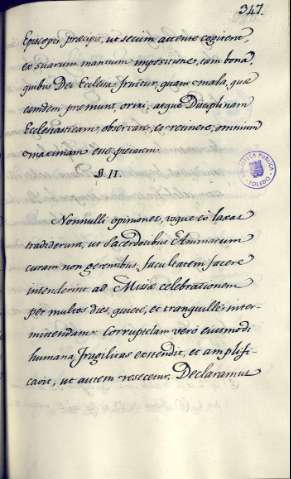 347.
Episcopis præcipit, ut secum accurate cogitent
ex suarum manuum impositione, tam bona,
quibus Dei Ecclesia fruitur, quam mala, quæ
eamdem premunt, oriri, atque Disciplinam
Ecclesiasticam observari, ea renuere, omnium
maximam esse pestem.
§. II.
Nonnulli opiniones, usque eò laxas
tradiderunt, ut Sacerdotibus Animarum
curam non gerentibus facultatem facere
intenderint ad Missæ celebrationem
per multos dies, quiete, et tranquillè inter-
mittendam. Corruptelam verò ejusmodi
humana fragilitas extendit, et amplifi-
cavit, ut autem resecetur. Declaramus
PUBLICA
TOLEDO